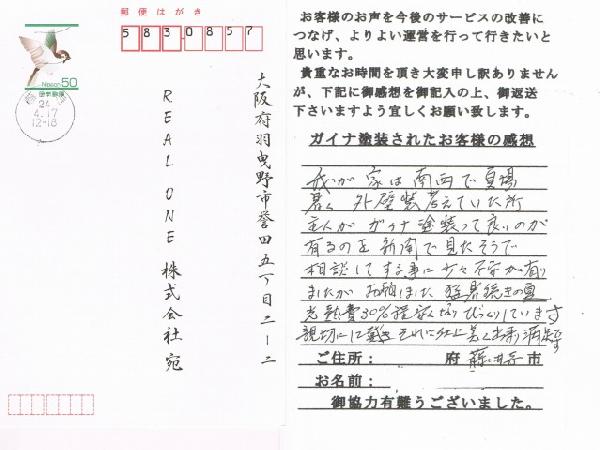 郵便はがき
5830857
NIPPON 50
日本郵便
24
4.17
12-18
大阪府羽曳野市誉田五丁目二ー二
REAL ONE 株式会社宛
お客様のお声を今後のサービスの改善に
つなげ、よりよい運営を行って行きたいと
思います。
貴重なお時間を頂き大変申し訳ありません
が、下記に御感想を御記入の上、御返送
下さいますよう宜しくお願い致します。
ガイナ塗装されたお客様の感想
我が家は南西で夏場
暑く 外壁装考えていた所
主人が ガイナ塗装って良いのが
有るのを新聞で見たそうで
相談してする事に 少々不安が有り
ましたが お陰さまで 猛暑続きの夏
光熱費30% びっくりしています
親切にして戴き それに仕上 美しく出来 満足です
ご住所: 府 藤井寺 市
お名前:
御協力有難うございました。